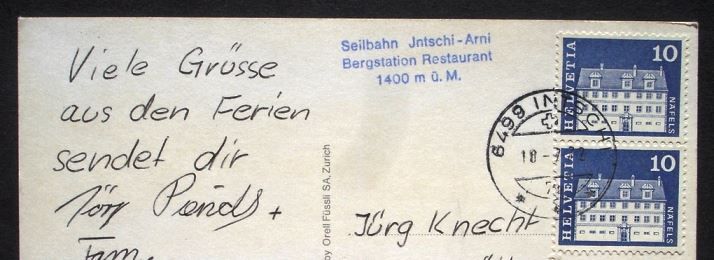 Viele Grüsse
aus den Ferien
sendet dir
Jörg
Fam.
by Orell Füssli SA, Zurich
Seilbahn Jntschi-Arni
Bergstation Restaurant
1400 m ü. M.
Jürg Knecht
6479
HELVETIA 10 NÄFELS
HELVETIA 10 NÄFELS